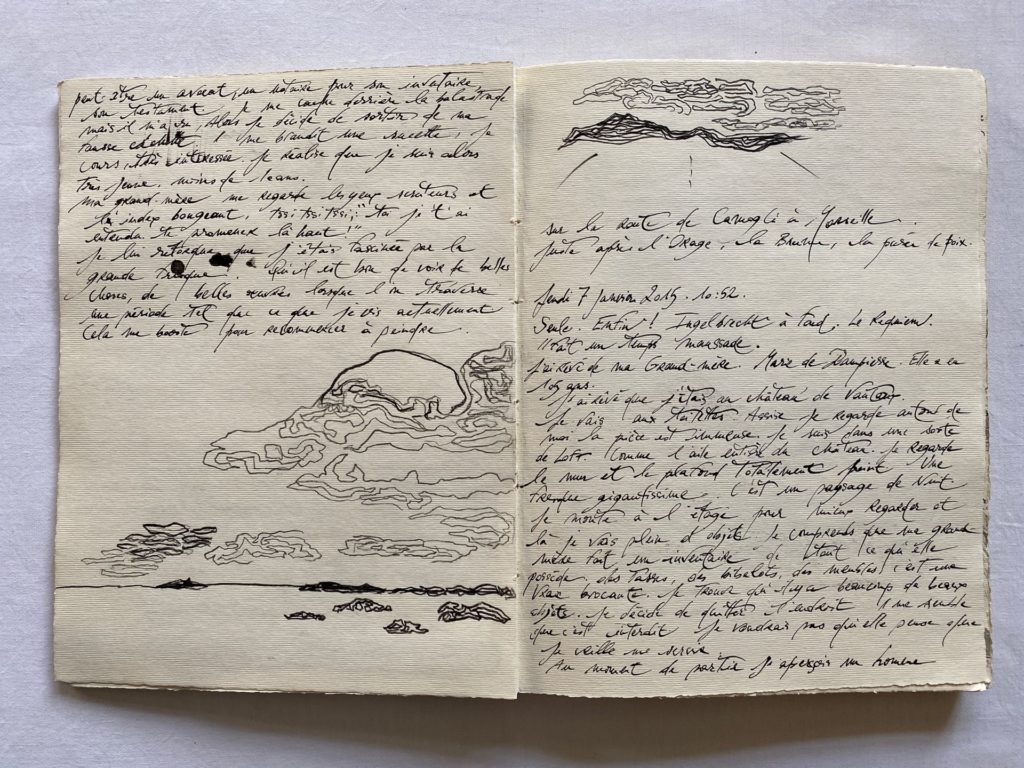 peut être un avocat, un notaire pour son inventaire
son testament. Je me cache derrière la balustrade
mais il m'a vu, Alors je décide de sortir de ma
fausse cachette. me brandit une sucette, Je
cours, très intéressée. Je réalise que je suis alors
très jeune. moins de 10 ans.
Ma grand-mère me regarde les yeux scruteurs et
l'index bougeant, "tssi tssi tssi, toi je t'ai
entendu te promener là haut!"
Je lui rétorque que j'étais fascinée par la
grande Fresque! Qu'il est bon de voir de belles
choses, de belles œuvres lorsque l'on traverse
une période tel que ce que je vis actuellement
Cela me booste pour recommencer à peindre.
sur la route de Camogli à Marseille.
Juste après l'Orage, la Brume, la purée de poix.
Jeudi 7 Janvier 2015. 10:52.
Seule. Enfin! Ingelbrecht à fond. Le Requiem.
Il fait un temps maussade.
J'ai rêvé de ma Grand-mère. Marie de Dampierre. Elle a eu
105 ans.
J'ai rêvé que j'étais au château de
Je vais aux toilettes. Assise je regarde autour de
moi la pièce est immense. Je suis dans une sorte
de Loft. Comme l'aile entière du château. Je regarde
le mur et le plafond totalement peint. Une
Fresque gigantissime. C'est un paysage de Nuit.
Je monte à l'étage pour mieux Regarder et
là je vois plein d'objets. Je comprends que ma grand
mère fait un inventaire de tout ce qu'elle
possède, des tasses, des bibelots, des meubles! c'est une
vraie brocante. Je trouve qu'il y a beaucoup de beaux
objets. Je décide de quitter l'endroit. Il me semble
que c'est interdit. Je voudrais pas qu'elle pense que
je veille me servir.
Au moment de partir j'aperçois un homme